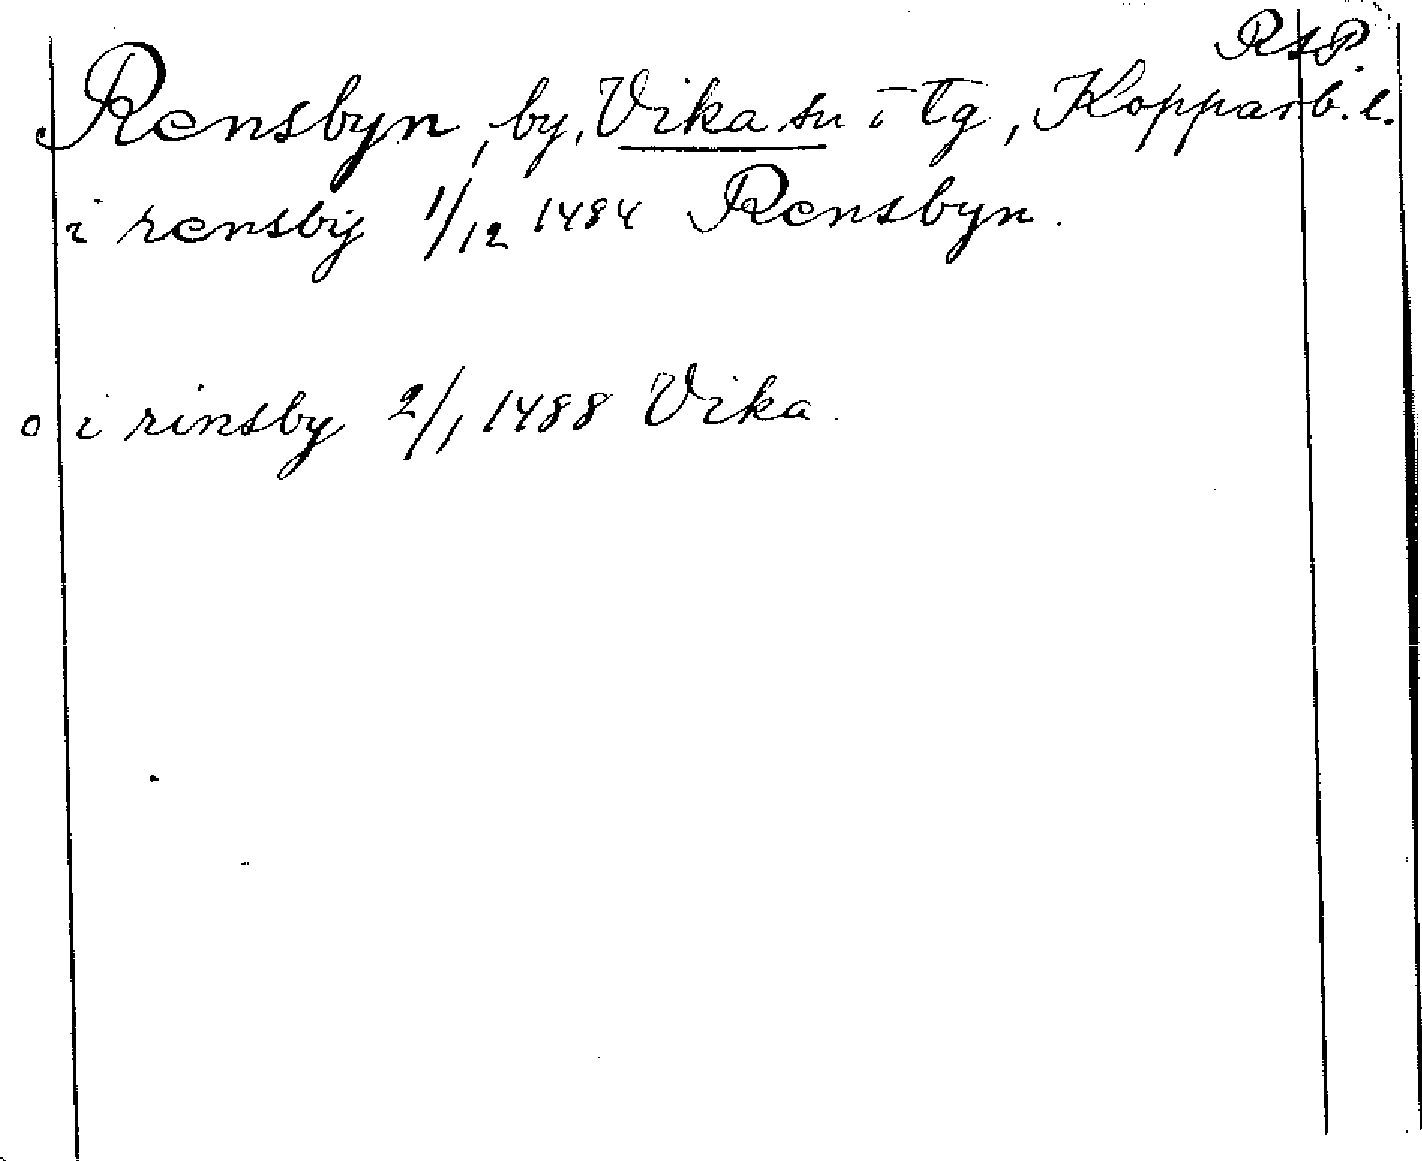 RAP.
Rensbyn, by, Vika sn i Tg, Kopparb. l.
i rensbÿ 1/12 1484 Rensbyn.
o i rinsby 2/1 1488 Vika.